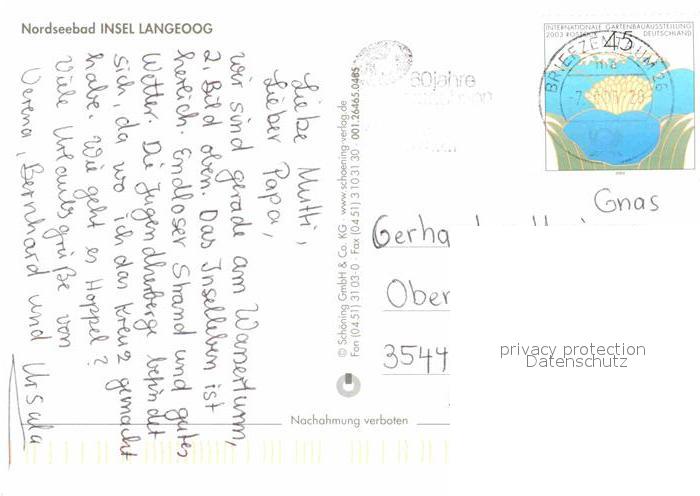 Nordseebad INSEL LANGEOOG
Liebe Mutti,
Lieber Papa,
wir sind gerade am Wasserturm,
2. Bild oben. Das Inselleben ist
herrlich. Endloser Strand und gutes
Wetter. Die Jugendherberge befindet
sich, da wo ich das Kreuz gemacht
habe. Wie geht es Hoppel?
Viele Urlaubsgrüße von
Verena, Bernhard und Ursula
© Schöning GmbH & Co. KG · www.schoening-verlag.de
Fon (04 51) 31 03-0 · Fax (04 51) 3 10 31 30 · 001.26465.0485
60 Jahre
INTERNATIONALE GARTENBAUAUSSTELLUNG
2003 ROSTOCK DEUTSCHLAND
45
BRIEFZENTRUM 26
Gnas
Gerha
Ober
3544
privacy protection
Datenschutz
Nachahmung verboten